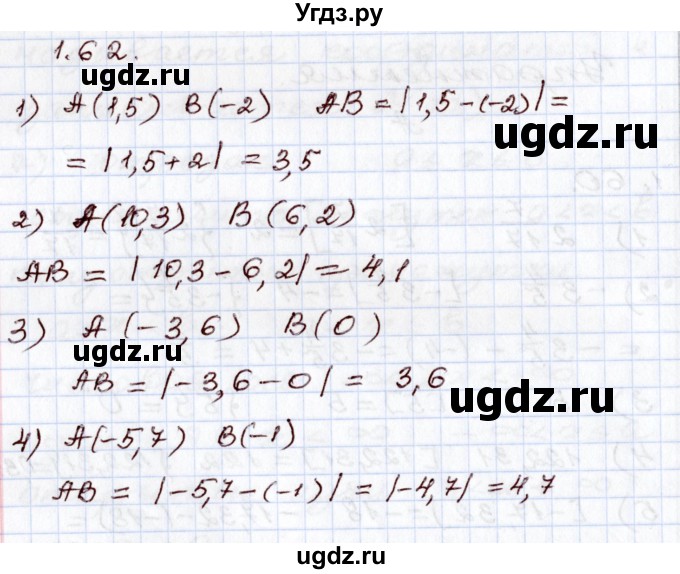 Угдз.ру
1.62.
ugdz.ru
1) A(1,5) B(-2) AB = |1,5-(-2)| =
ugdz.ru
= |1,5+2| = 3,5
2) A(10,3) B(6,2)
AB = |10,3-6,2| = 4,1
3) A(-3,6) B(0)
ugdz.ru
AB = |-3,6-0| = 3,6
ugdz.ru
4) A(-5,7) B(-1)
AB = |-5,7-(-1)| = |-4,7| = 4,7
ugdz.ru
ugdz.ru